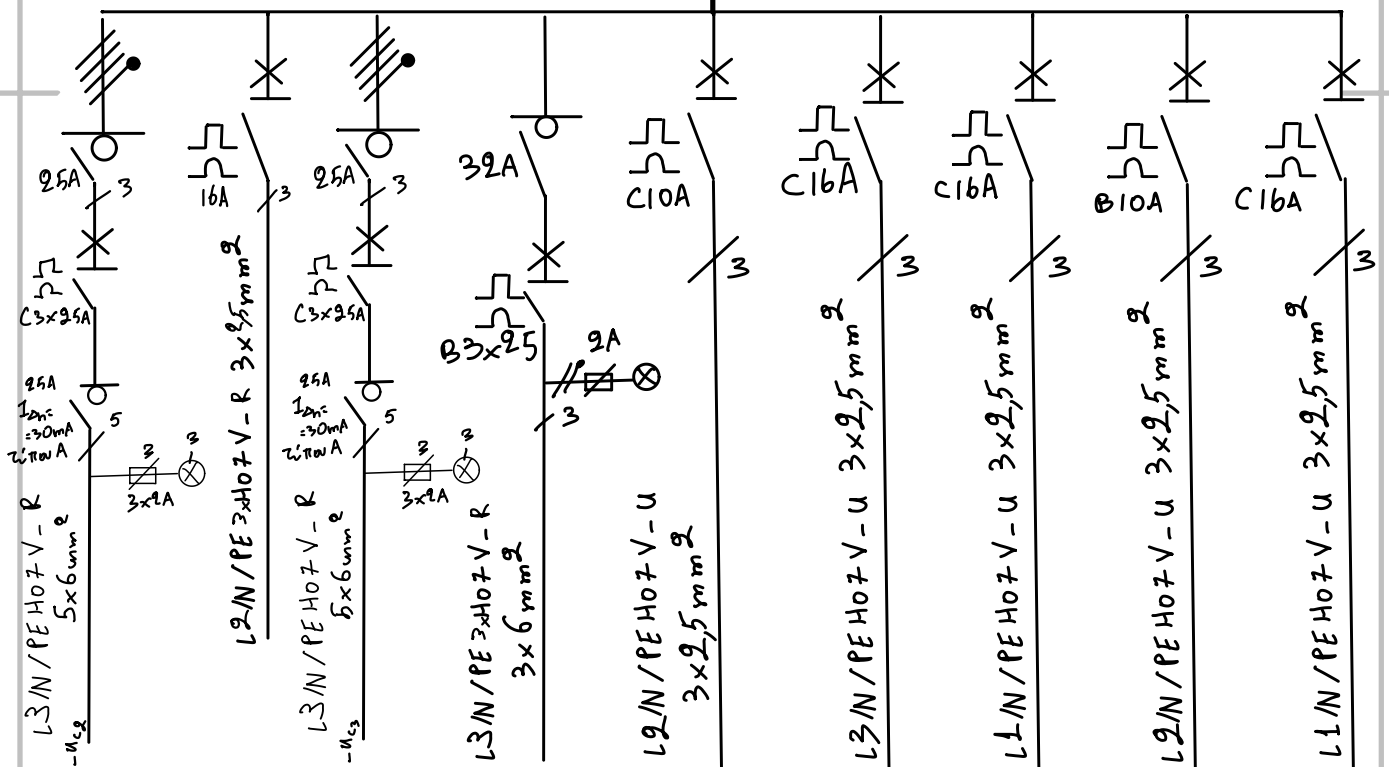 25A
3
C3x25A
25A
IΔn=
=30mA
τύπου A
5
3
3
3x2A
L3/N/PE H07V-R
5x6mm2
-Uc2
16A
3
L2/N/PE 3xH07V-R 3x2,5mm2
25A
3
C3x25A
25A
IΔn=
=30mA
τύπου A
5
3
3
3x2A
L3/N/PE H07V-R
5x6mm2
-Uc3
32A
B3x25
2A
3
L3/N/PE 3xH07V-R
3x6mm2
C10A
3
L2/N/PE H07V-U
3x2,5mm2
C16A
3
L3/N/PE H07V-U 3x2,5mm2
C16A
3
L1/N/PE H07V-U 3x2,5mm2
B10A
3
L2/N/PE H07V-U 3x2,5mm2
C16A
3
L1/N/PE H07V-U 3x2,5mm2